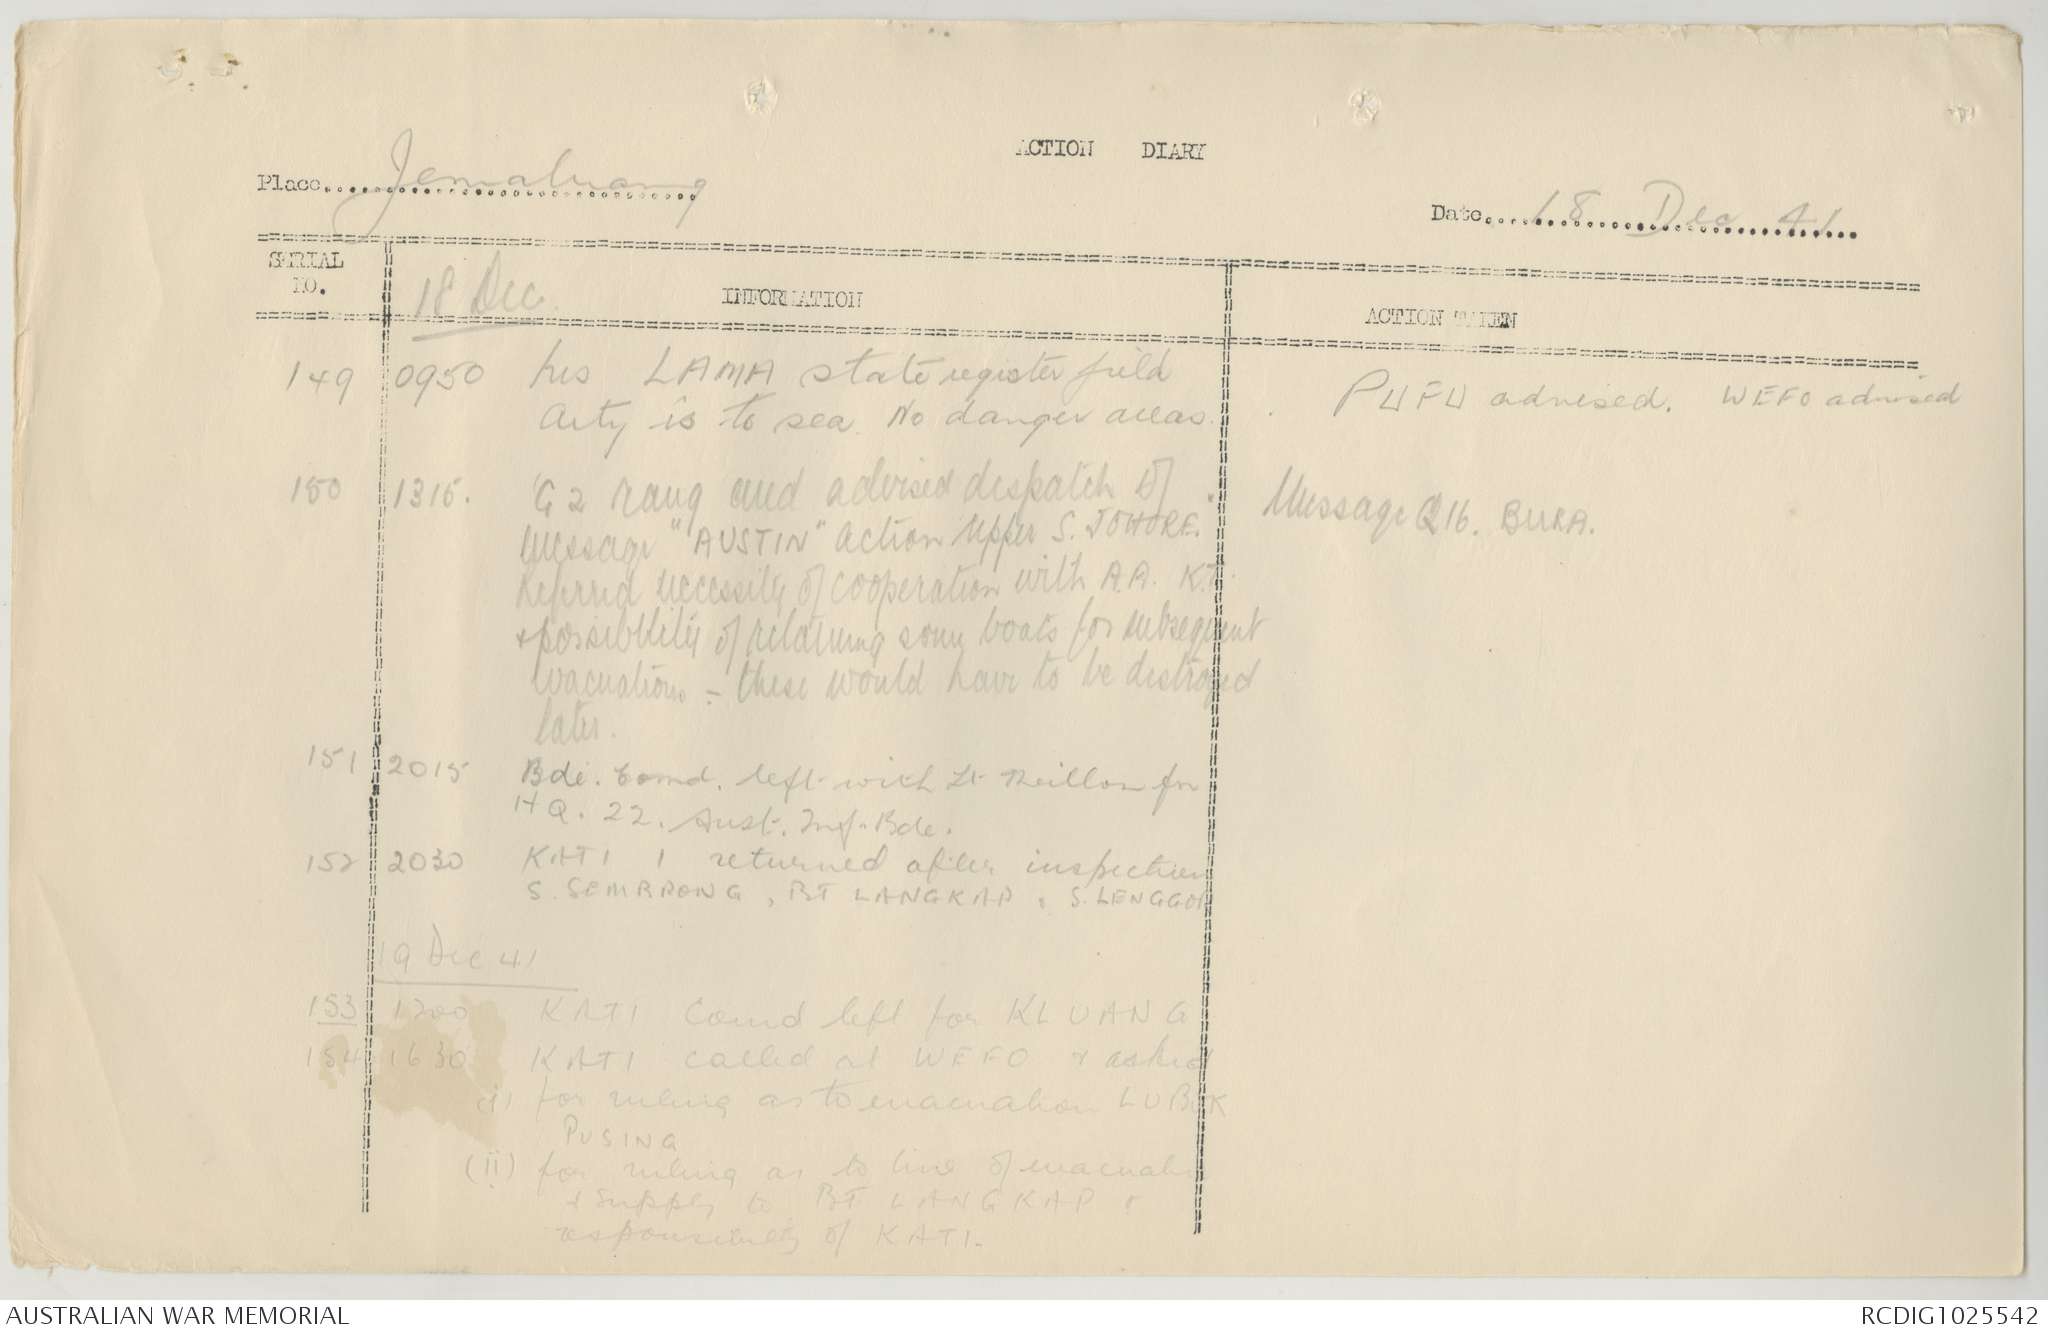 ACTION DIARY
Place Jemaluang
Date 18 Dec 41
SERIAL NO.
18 Dec.
INFORMATION
ACTION TAKEN
149 0950 LAMA state register field
Arty is to sea. No danger areas.
PUFU advised. WEFO advised
150 1315. G2 rang and advised despatch of
message "AUSTIN" action Upper S. JOHORE.
Message Q16. BURA.
Referred necessity of cooperation with A.A.
& possibility of retaining some boats for subsequent
evacuation - these would have to be destroyed
later.
151 2015 Bde. Comd. left with Lt for
HQ. 22. Aust. Inf. Bde.
152 2030 KATI 1 returned after inspection
S. SEMBRONG, BT LANGKAP & S. LENGGOR
19 Dec 41
153 1200 KATI Comd left for KLUANG
154 1630 KATI called at WEFO & asked
(i) for ruling as to evacuation LUBUK
PUSING
(ii) for ruling as to line of evacuation
& supply to BT LANGKAP &
responsibility of KATI.
AUSTRALIAN WAR MEMORIAL
RCDIG1025542